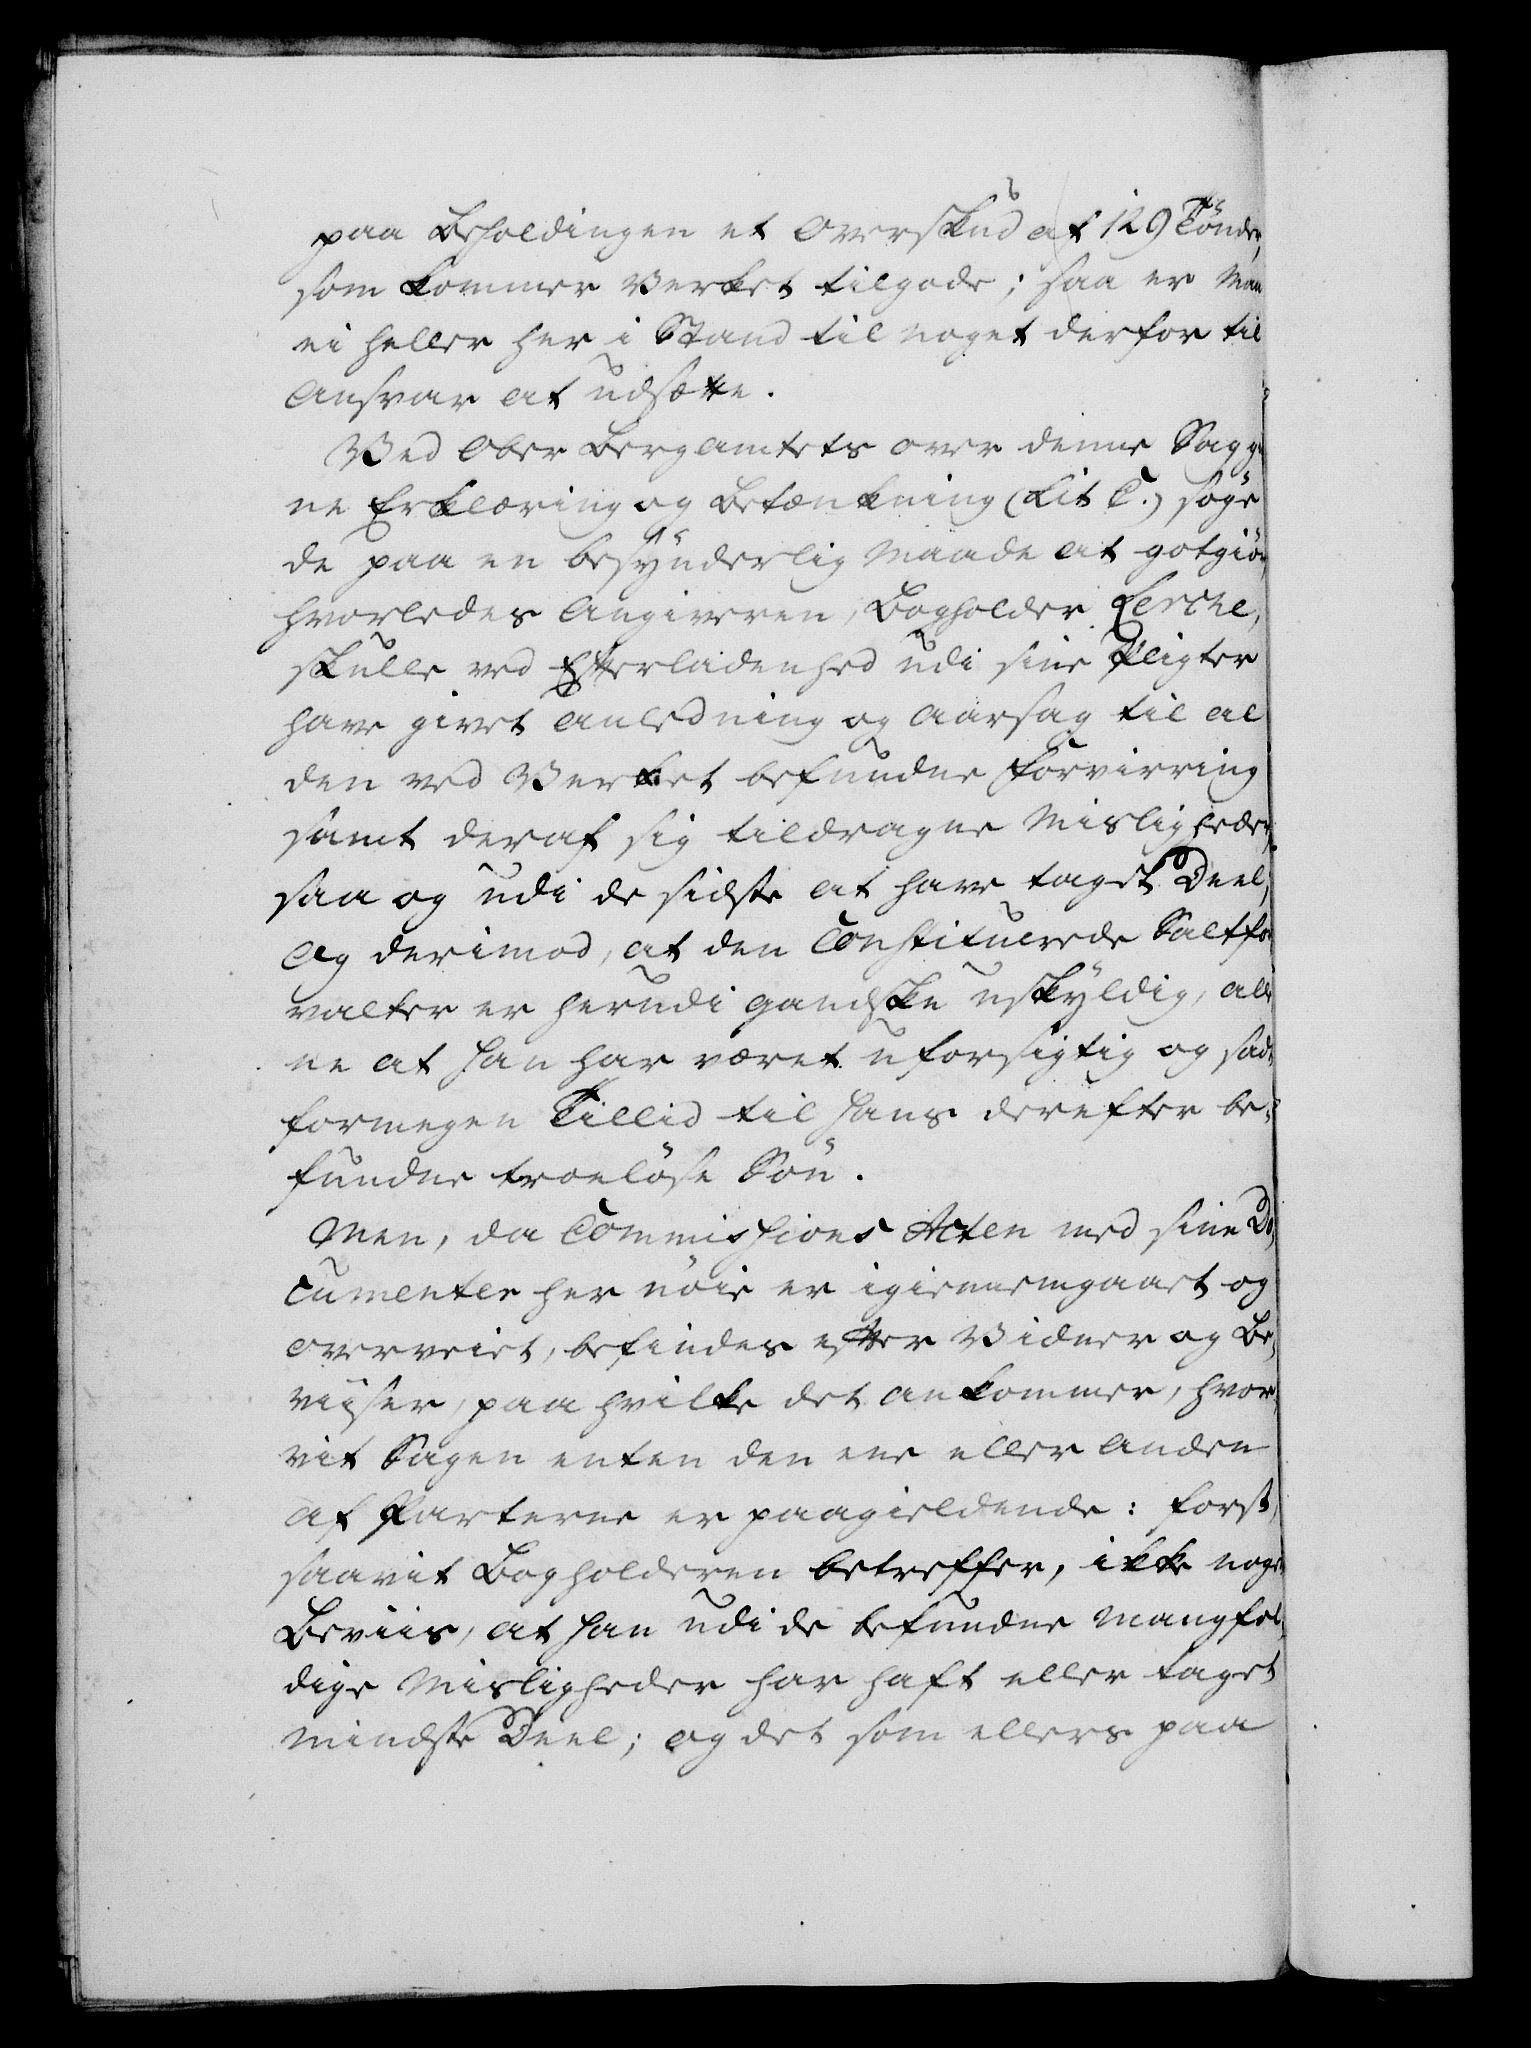 paa Beholdingen et Overskud af 129 Tönder,
som kommer Verket tilgode; saa er man
ei heller her i Stand til noget derfor til
Ansvar at udsætte.
Ved Ober Bergamtets over denne Sag giv
ne Erklæring og Betænkning (Lit C.) söge
de paa en besÿnderlig Maade at gotgiör
hvorledes Angiveren, Bogholder Lerche,
skulle ved Efterladenhed udi sine Pligter
have givet Anledning og Aarsag til al
den ved Verket befundne Forvirring
samt deraf sig tildragne Misligheder,
saa og udi de sidste at have taget Deel,
Og derimod, at den Constituerede Saltfor
valter er herudi gandske uskÿldig, alle
ne at han har været uforsigtig og sadt
formegen Tillid til hans derefter be-
fundne troelöse Sön.
Men, da Commissions Acten med sine Do,
cumenter her nöie er igiennemgaaet og
overveiet, befindes efter Vidner og Be,
viiser, paa hvilke det ankommer, hvor,
vit Sagen enten den ene eller Anden
af Parterne er paagieldende: först,
saavit Bogholderen betreffer, ikke noget
Beviis, at han udi de befundne Mangfol,
dige Misligheder har haft eller taget
mindste Deel; og det som ellers paa